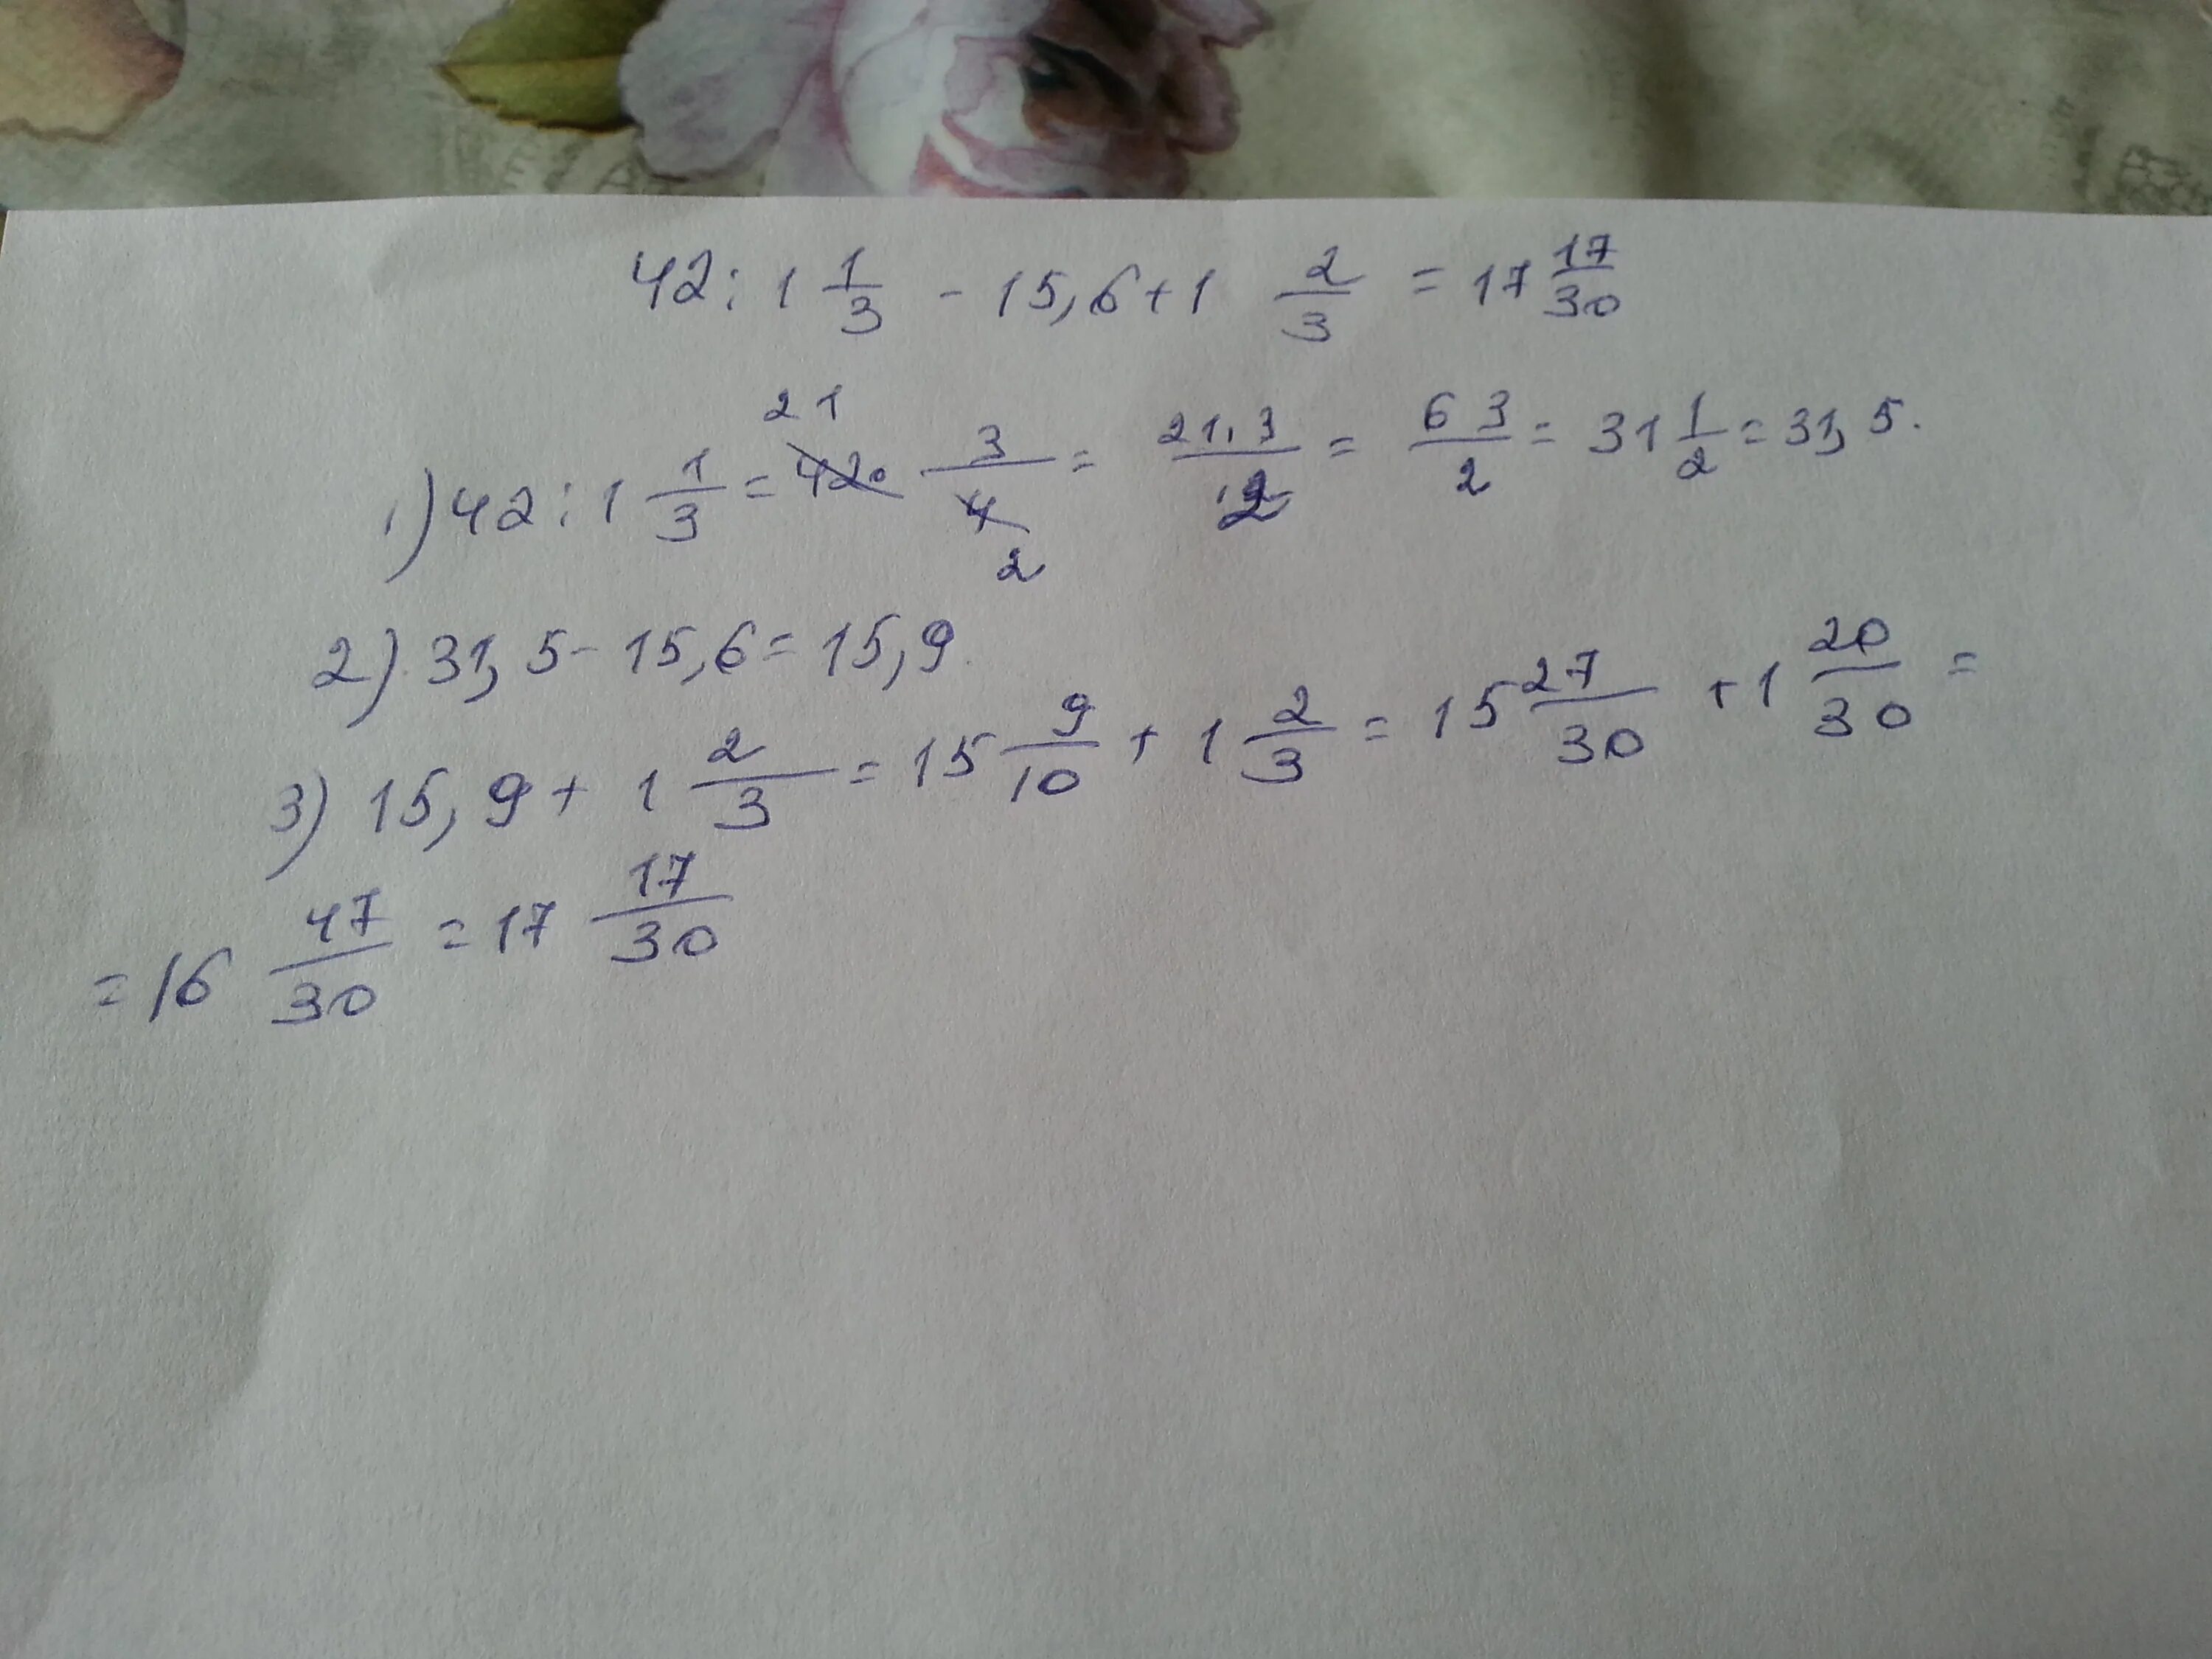 42 : 1 1/3 - 15,6 + 1 2/3 = 17 17/30
1) 42 : 1 1/3 = 42 21 · 3/4 2 = 21·3/2 = 63/2 = 31 1/2 = 31,5.
2) 31,5 - 15,6 = 15,9.
3) 15,9 + 1 2/3 = 15 9/10 + 1 2/3 = 15 27/30 + 1 20/30 =
= 16 47/30 = 17 17/30